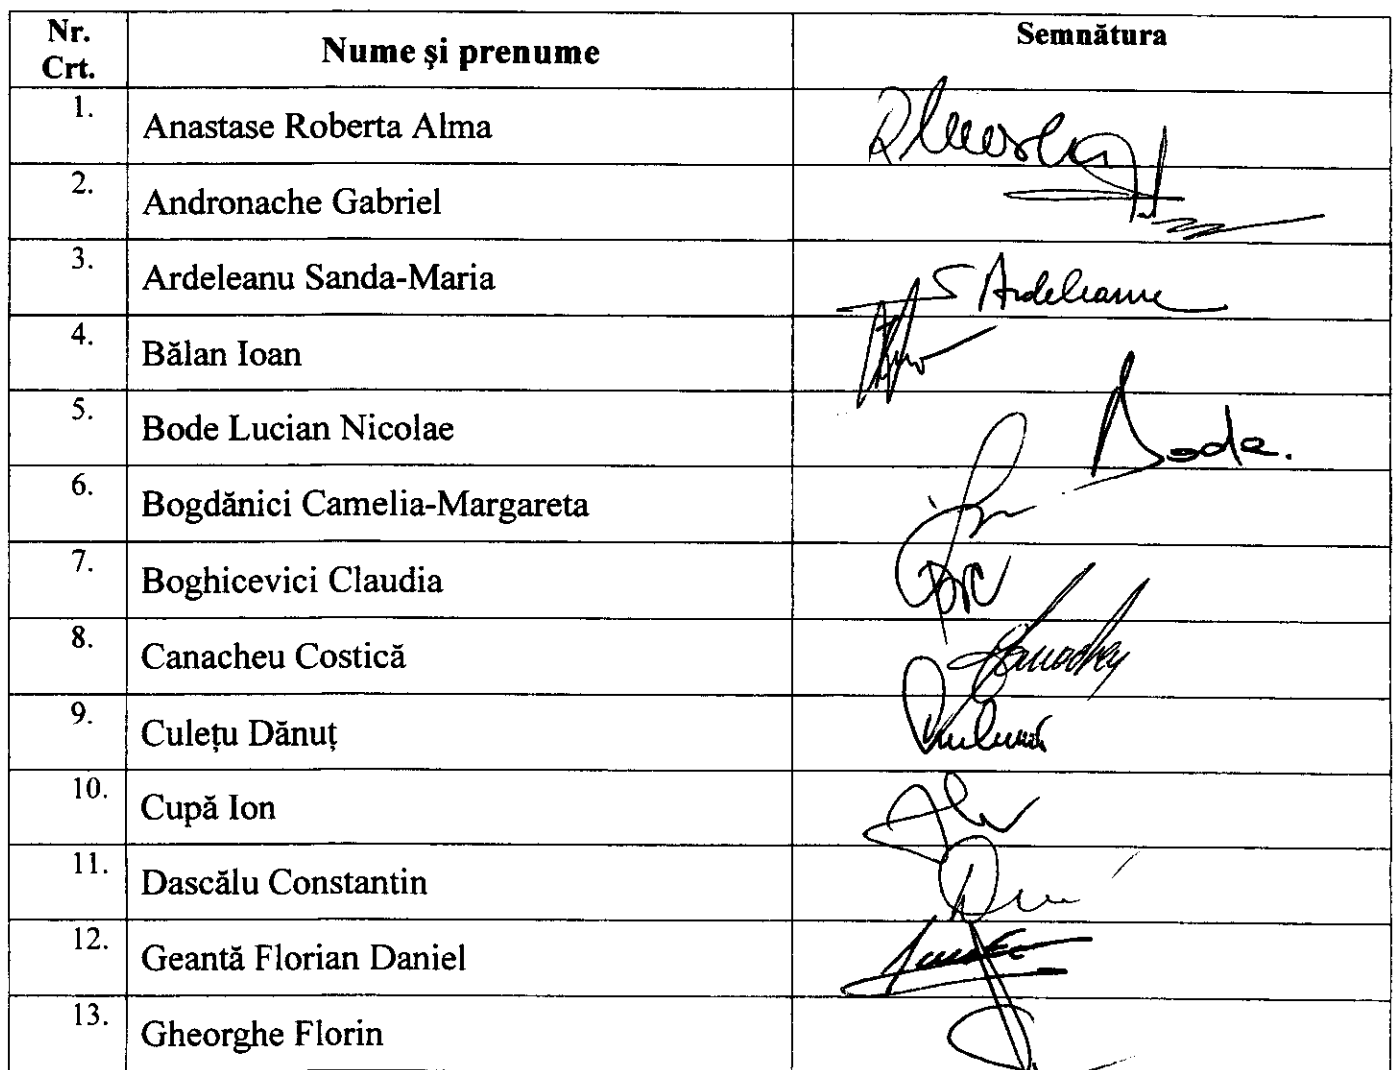 Nr. Crt. Nume și prenume Semnătura
1. Anastase Roberta Alma
2. Andronache Gabriel
3. Ardeleanu Sanda-Maria S Ardeleanu
4. Bălan Ioan
5. Bode Lucian Nicolae Bode.
6. Bogdănici Camelia-Margareta
7. Boghicevici Claudia
8. Canacheu Costică
9. Culețu Dănuț
10. Cupă Ion
11. Dascălu Constantin
12. Geantă Florian Daniel
13. Gheorghe Florin